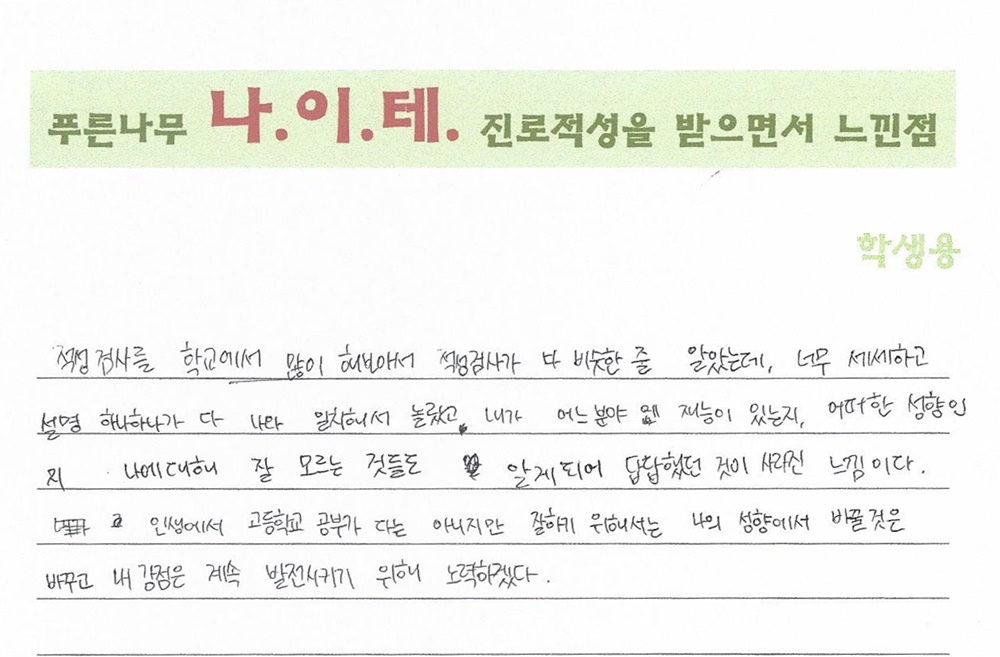 푸른나무 나.이.테. 진로적성을 받으면서 느낀점
학생용
적성검사를 학교에서 많이 해보아서 적성검사가 다 비슷한 줄 알았는데, 너무 세세하고
설명 하나하나가 다 나와 일치해서 놀랐고, 내가 어느분야에 재능이 있는지, 어떠한 성향인
지 나에대해 잘 모르는 것들도 알게되어 답답했던 것이 사라진 느낌이다.
인생에서 고등학교 공부가 다는 아니지만 잘하기 위해서는 나의 성향에서 바꿀것은
바꾸고 내 강점은 계속 발전시키기 위해 노력하겠다.